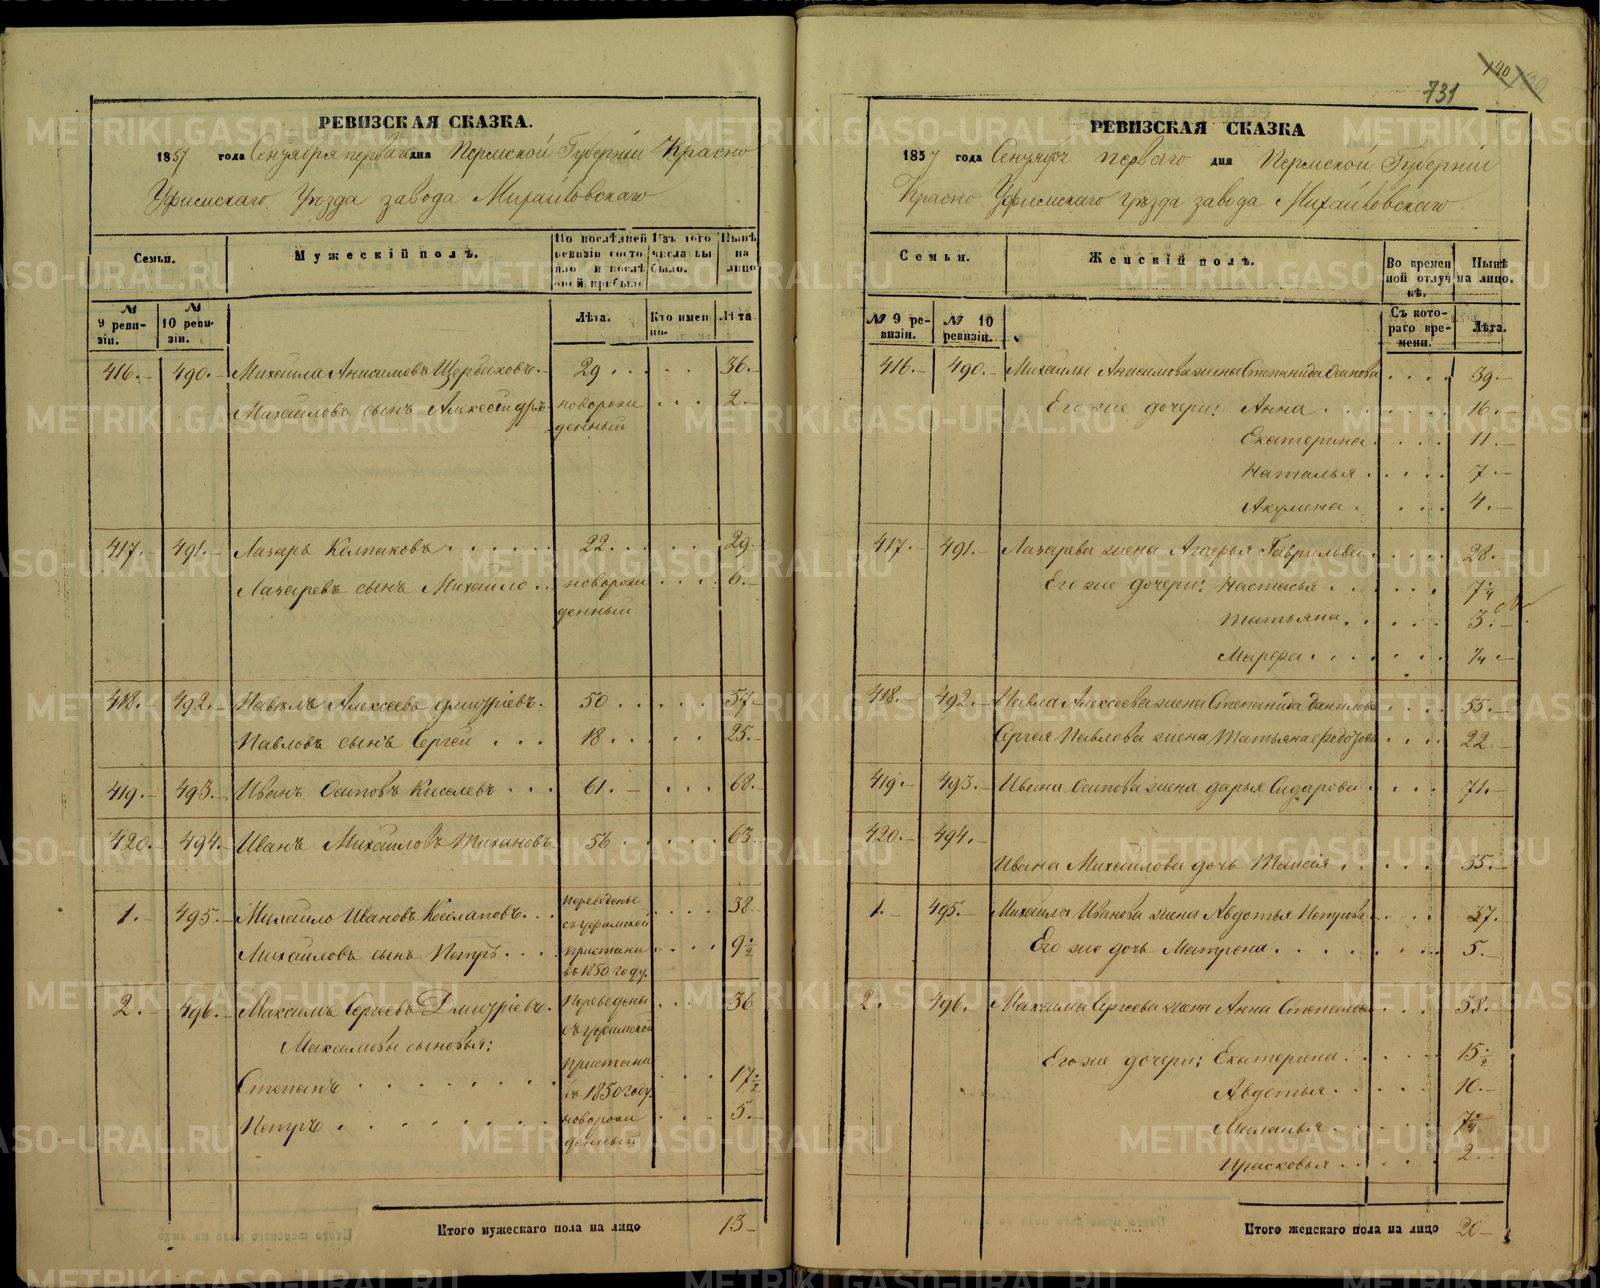 РЕВИЗСКАЯ СКАЗКА.
1857 года Сентября перваго дня Пермской Губерніи Красно
Уфимскаго Уѣзда завода Михайловскаго
Семьи.
Мужескій полъ.
По послѣдней ревизіи состояло и послѣ оной прибыло
Изъ того числа выбыло.
Нынѣ на лицо
№ 9 ревизіи.
№ 10 ревизіи.
Лѣта.
Кто именно.
Лѣта
416. 490. Михаила Анисимовъ Щербаковъ. 29 36.
Михайловъ сынъ Александръ новорожденный 2.
417. 491. Лазарь Колпаковъ 22 29.
Лазаревъ сынъ Михайло новорожденный 6.
418. 492. Павелъ Алексеевъ Дмитріевъ. 50 57
Павловъ сынъ Сергей 18 25.
419. 493. Иванъ Осиповъ Киселевъ 61. 68.
420. 494. Иванъ Михайловъ 56 63.
1. 495. Михайло Ивановъ переведенъ съ Уфимской 38.
Михайловъ сынъ Петръ пристани въ 1850 году. 9 1/2
2. 496. Максимъ Сергеевъ Дмитріевъ. Переведены съ Уфимской 36
Максимовы сыновья:
Степанъ пристани въ 1850 году 17 1/2
Петръ новорожденный 5.
Итого мужескаго пола на лицо 13
140
731
РЕВИЗСКАЯ СКАЗКА
1857 года Сентября перваго дня Пермской Губерніи
Красно Уфимскаго Уѣзда завода Михайловскаго
Семьи.
Женскій полъ.
Во временной отлучкѣ.
Нынѣ на лицо.
№ 9 ревизіи.
№ 10 ревизіи.
Съ котораго времени.
Лѣта.
416. 490. Михайлы Анисимова жена Степанида Осипова 39.
Его же дочери: Анна 16.
Екатерина 11.
Наталья 7.
Акулина 4.
417. 491. Лазарева жена Агафья Гаврилова 28.
Его же дочери: Настасья 7 1/4
Татьяна 3.
Марфа 1/4
418. 492. Павла Алексеева жена Степанида Данилова 55.
Сергея Павлова жена Татьяна Федотова 22
419. 493. Ивана Осипова жена Дарья Сидорова 71.
420. 494.
Ивана Михайлова дочь Таисія 35.
1. 495. Михайла Иванова жена Авдотья Петрова 37.
Его же дочь Матрена 5.
2. 496. Максима Сергеева жена Анна Степанова 38.
Его же дочери: Екатерина 15 1/2
Авдотья 10.
Маланья 7 1/4
Прасковья 2
Итого женскаго пола на лицо 20
METRIKI.GASO-URAL.RU